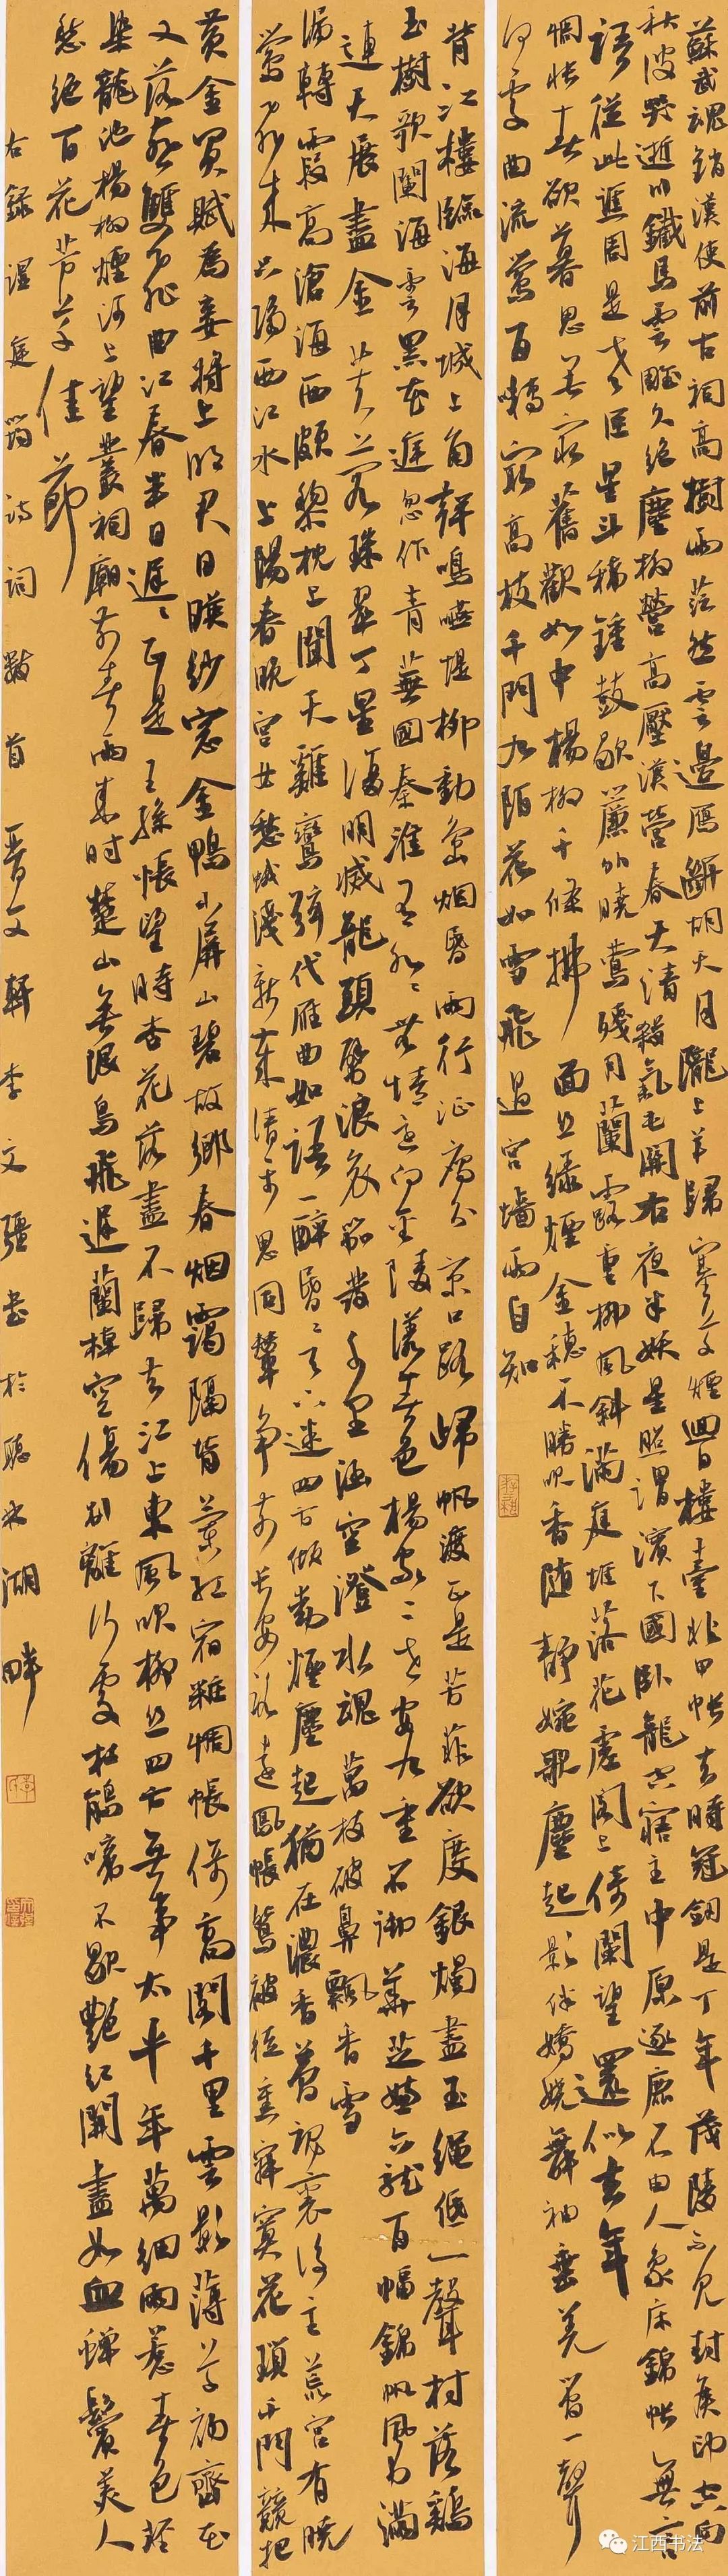 蘇武魂銷漢使前古祠高樹兩茫然雲邊雁斷胡天月隴上羊歸塞草煙迴日樓臺非甲帳去時冠劍是丁年茂陵不見封侯印空向
秋波哭逝川鐵馬雲雕久絕塵柳營高壓漢營春天清殺氣屯關右夜半妖星照渭濱下國臥龍空寤主中原逐鹿不由人象床錦帳無言
語從此譙周是老臣星斗稀鍾鼓歇簾外曉鶯殘月蘭露重柳風斜滿庭堆落花虛閣上倚闌望還似去年
惆悵春欲暮思無窮舊歡如中楊柳千條拂面絲綠煙金穗不勝吹香隨靜婉歌塵起影伴嬌嬈舞袖垂羌管一聲
何處曲流鶯百囀最高枝千門九陌花如雪飛過宮牆兩自知
背江樓臨海月城上角聲鳴咽堤柳動島烟昏兩行征雁分京口路歸帆渡正是芳菲欲度銀燭盡玉繩低一聲村落鷄
玉樹歌闌海雲黑花庭忽作青蕪國秦淮有水水無情還向金陵漾春色楊家二世安九重不御華芝嫌六龍百幅錦帆風力滿
連天展盡金芙蓉珠翠丁星復明滅龍頭劈浪哀笳發千里涵空澄水魂萬枝破鼻飄香雪
漏轉霞高滄海西頗黎枕上聞天雞鸞弦代雁曲如語一醉昏昏天下迷四方傾動煙塵起猶在濃香夢魂裏後主荒宮有曉
鶯飛來只隔西江水上陽春晚宮女愁蛾淺新歲清平思同輦爭奈長安路遠鳳帳鴛被徒熏寂寞花瑣千門競把
黃金買賦爲妾將上明君日映紗窗金鴨小屏山碧故鄉春烟靄隔背蘭釭宿粧惆悵倚高閣千里雲影薄草初齊花
又落燕雙飛曲江春半日遲遲正是王孫悵望時杏花落盡不歸去江上東風吹柳絲四方無事太平年萬細雨惹春色輕
染龍池楊柳煙河上望叢祠廟前春雨來時楚山無限鳥飛遲蘭棹空傷別離何處杜鵑啼不歇艷紅開盡如血蟬鬢美人
愁絕百花芳草佳節
右錄溫庭筠詩詞數首晋文軒李文疆書於聽水湖畔
江西书法